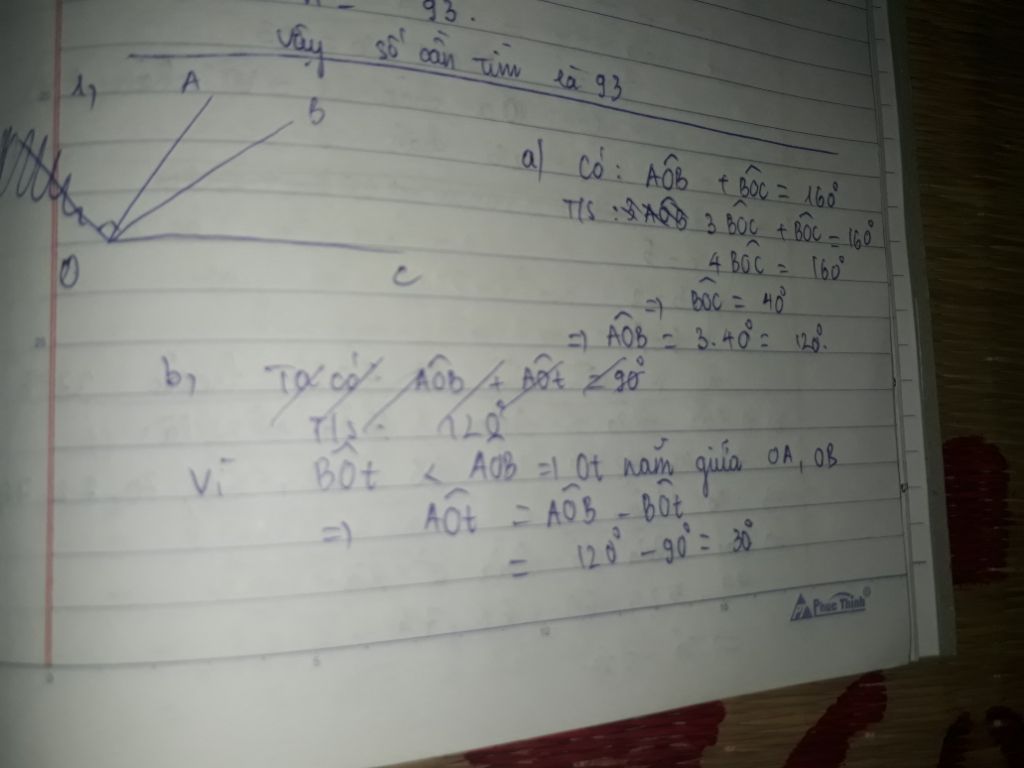 93.
Vậy số cần tìm là 93
1,
A
B
O
C
a) Có: AÔB + BÔC = 160°
T/S: 3 BÔC + BÔC = 160°
4 BÔC = 160°
=> BÔC = 40°
=> AÔB = 3.40° = 120°.
b, Ta có: AÔB + AÔt = 90°
T/S: 120°
Vì BÔt < AOB => Ot nằm giữa OA, OB
=> AÔt = AÔB - BÔt
= 120° - 90° = 30°
Phuc Thinh